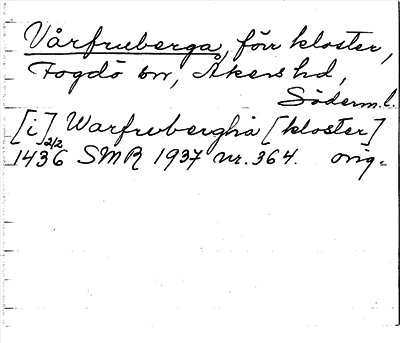 Vårfruberga, förr kloster,
Fogdö sn, Åkers hd,
Söderm.l.
[i] Warfruberghā [kloster]
2/2
1436 SMR 1937 nr. 364. orig.